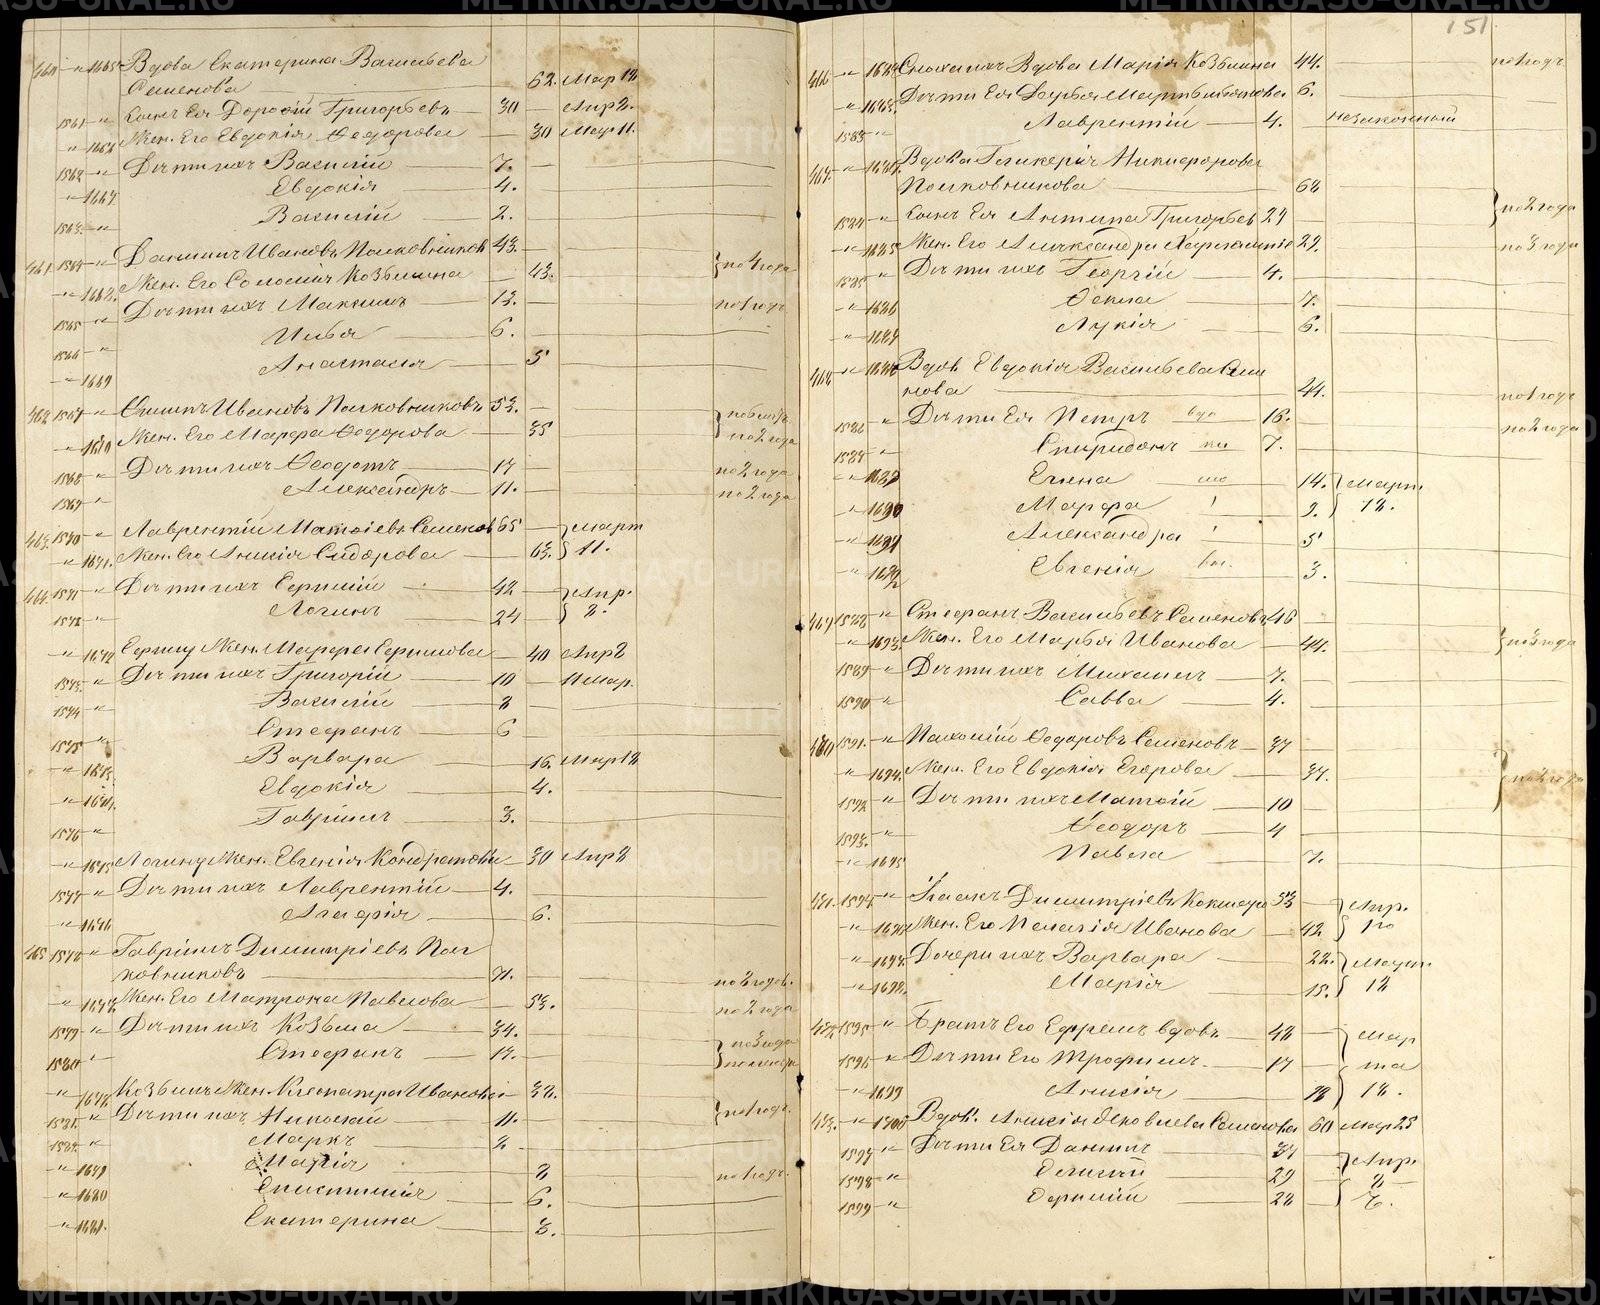 460 -"- 1665 Вдова Екатерина Васильева
Семенова 62. Мар 12
1561 -"- Сынъ Ея Дорофій Григорьевъ 30 Апр 2.
-"- 1666 Жен. Его Евдокія Ѳедорова 30 Мар 11.
1562 -"- Дѣти ихъ Василій 7.
-"- 1667 Евдокія 4.
1563 -"- Василій 2.
461. 1564 -"- Даніилъ Ивановъ Полковниковъ 43.
-"- 1668. Жен. Его Соломія Козьмина 43. по 4 года
1565 -"- Дѣти ихъ Максимъ 13. по 1 годъ
Илья 6.
1566 -"-
-"- 1669 Анастасія 5
462 1567 -"- Филипъ Ивановъ Полковниковъ 53.
-"- 1670 Жен. Его Марфа Ѳедорова 35 по 2 года
1568 -"- Дѣти ихъ Ѳеодотъ 17 по 2 года
1569 -"- Александръ 11. по 2 года
463. 1570 -"- Лаврентій Матѳіевъ Семеновъ 65 март
-"- 1671. Жен. Его Анисія Сидорова 63. 11.
464. 1571 -"- Дѣти ихъ Ермилій 42 Апр.
1572 -"- Логинъ 24 2.
-"- 1672 Ермилу Жен. Марфа Ермилова 40 Апр 2
1573. -"- Дѣти ихъ Григорій 10 11 Мар.
1574 -"- Василій 8
Стефанъ 6
1575 -"-
-"- 1673. Варвара 16. Мар 12
-"- 1674. Евдокія 4.
1576 -"- Гавріилъ 3.
-"- 1675 Логину Жен. Евгенія Кондратова 30 Апр 2
1577 -"- Дѣти ихъ Лаврентій 4.
-"- 1676 Агафія 6.
465 1578 -"- Гавріилъ Димитріевъ Пол
ковниковъ 71. по 2 года.
-"- 1677. Жен. Его Матрона Павлова 53. по 2 года
1579 -"- Дѣти ихъ Козьма 34. по 3 года
1580 -"- Стефанъ 17.
-"- 1678. Козьмы Жен. Клеопатра Иванова 32.
1581. -"- Дѣти ихъ Николай 11. по 1 годъ.
1582. -"- Маркъ 2.
-"- 1679 Марія 8 по 1 годъ.
-"- 1680 Епистимія 6.
-"- 1681. Екатерина 3.
151
466. -"- 1682 Сноха ихъ Вдова Марія Козьмина 44. по 1 годъ
-"- 1683. Дѣти Ея Дарья 6.
1583 -"- Лаврентій 4. незаконный
467. -"- 1684. Вдова Гликерія Никифорова
Полковникова 62
1584 -"- Сынъ Ея Антипа Григорьев 27 по 2 года
-"- 1685 Жен. Его Александра 29. по 3 года
1585 -"- Дѣти ихъ Георгій 4.
-"- 1686 Ѳекла 7.
-"- 1687 Лукія 6.
468. -"- 1688 Вдов. Евдокія Васильева Семе
нова 44. по 1 годъ
1586 -"- Дѣти Ея Петръ 16. по 2 года
1587 -"- Спиридонъ 7.
-"- 1689 Елена 14. Март.
-"- 1690 Марфа 9. 12.
-"- 1691 Александра 5
-"- 1692 Евгенія 3.
469 1588 -"- Стефанъ Васильевъ Семеновъ 46
-"- 1693. Жен. Его Марья Иванова 44. по 3 года
1589 -"- Дѣти ихъ Михаилъ 7.
1590 -"- Савва 4.
470 1591. -"- Пахомій Ѳедоровъ Семеновъ 37
-"- 1694. Жен. Его Евдокія Егорова 37. по 2 года
1592. -"- Дѣти ихъ Матѳій 10
1593. -"- Ѳеодоръ 4
-"- 1695 Павла 7.
471. 1594 -"- Исаакъ Димитріевъ 53 Апр.
-"- 1696 Жен. Его Пелагія Иванова 42
-"- 1697. Дочери ихъ Варвара 22. Март.
-"- 1698. Марія 15. 12
472. 1595 -"- Братъ Его Ефремъ вдовъ 48 мар
1596 -"- Дѣти Его Трофимъ 17 та
-"- 1699 Анисія 12.
473. -"- 1700 Вдов. Анисія Яковлева Семенова 60 Мар 25
1597 -"- Дѣти Ея Даніилъ 37 Апр.
1598 -"- 29 2
1599 -"- Ермилій 22